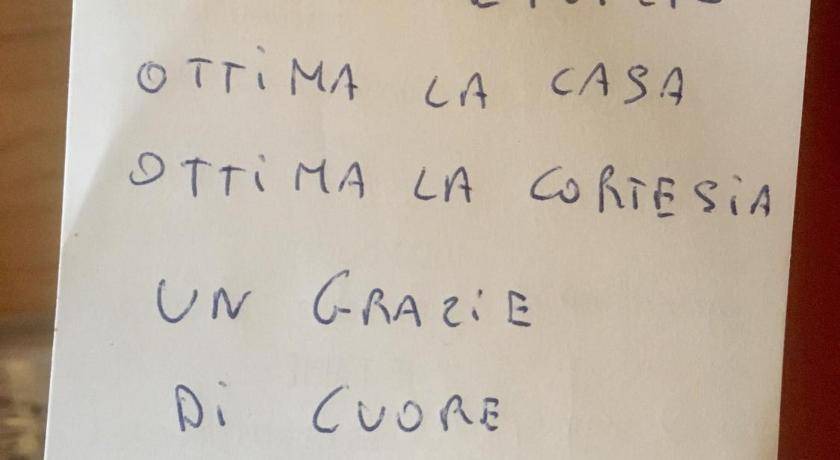 OTTiMA LA CASA
OTTiMA LA CORTESiA
UN GRAZiE
Di CUORE